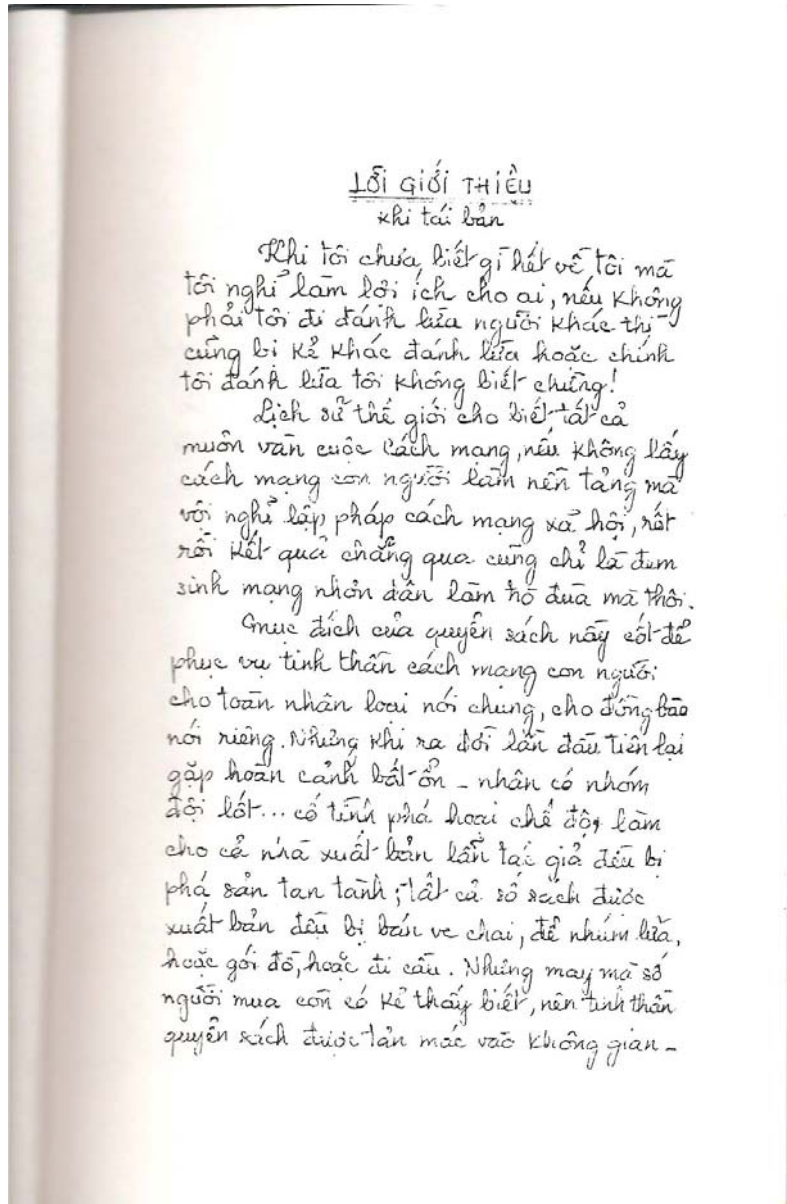 LỜI GIỚI THIỆU
khi tái bản
Khi tôi chưa biết gì hết về tôi mà
tôi nghỉ làm lợi ích cho ai, nếu không
phải tôi đi đánh lừa người khác thì
cũng bị kẻ khác đánh lừa hoặc chính
tôi đánh lừa tôi không biết chừng!
Lịch sử thế giới cho biết, tất cả
muôn vàn cuộc Cách mạng, nếu không lấy
cách mạng con người làm nền tảng mà
vội nghỉ lập pháp cách mạng xả hội, rốt
rồi kết quả chẳng qua cũng chỉ là đem
sinh mạng nhơn dân làm trò đùa mà thôi.
Mục đích của quyển sách này cốt để
phục vụ tinh thần cách mạng con người
cho toàn nhân loại nói chung, cho đồng bào
nói riêng. Nhưng khi ra đời lần đầu tiên lại
gặp hoàn cảnh bất ổn - nhân có nhóm
đội lốt... cố tình phá hoại chế độ, làm
cho cả nhà xuất bản lẫn tác giả đều bị
phá sản tan tành; tất cả số sách được
xuất bản đều bị bán ve chai, để nhúm lửa,
hoặc gói đồ, hoặc đi cầu. Nhưng may mà số
người mua còn có kẻ thấy biết, nên tinh thần
quyển sách được tản mác vào không gian -